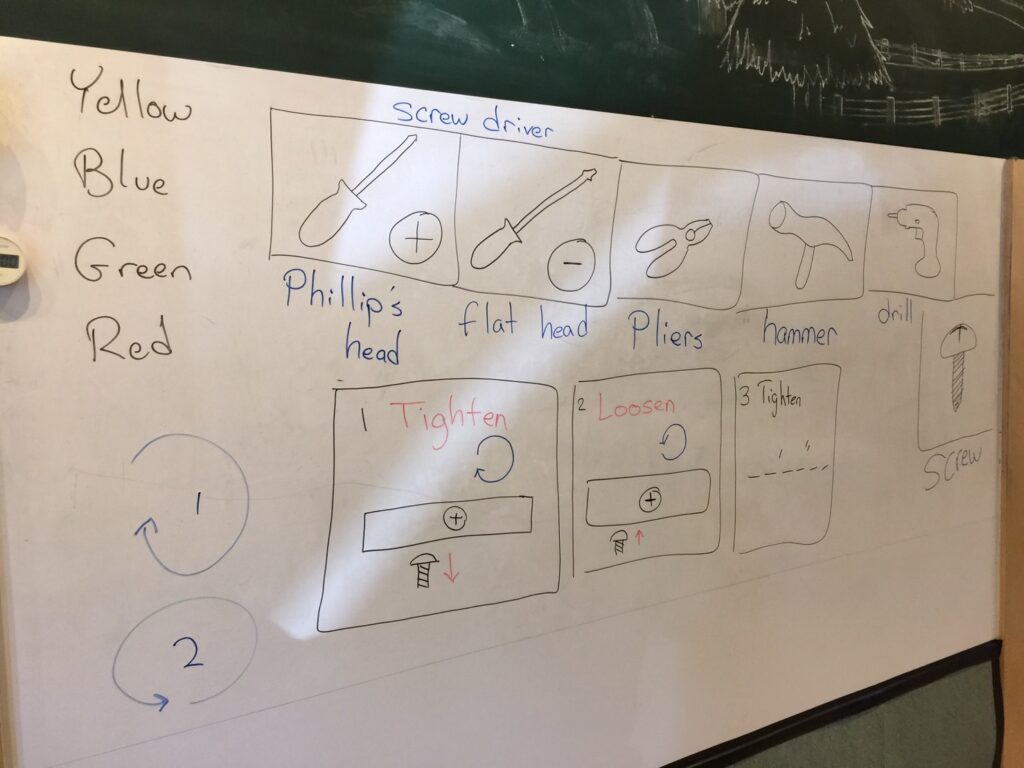 Yellow
Blue
Green
Red
Screw driver
Phillip's
head
flat head
Pliers
hammer
drill
Screw
1 Tighten
2 Loosen
3 Tighten
1
2